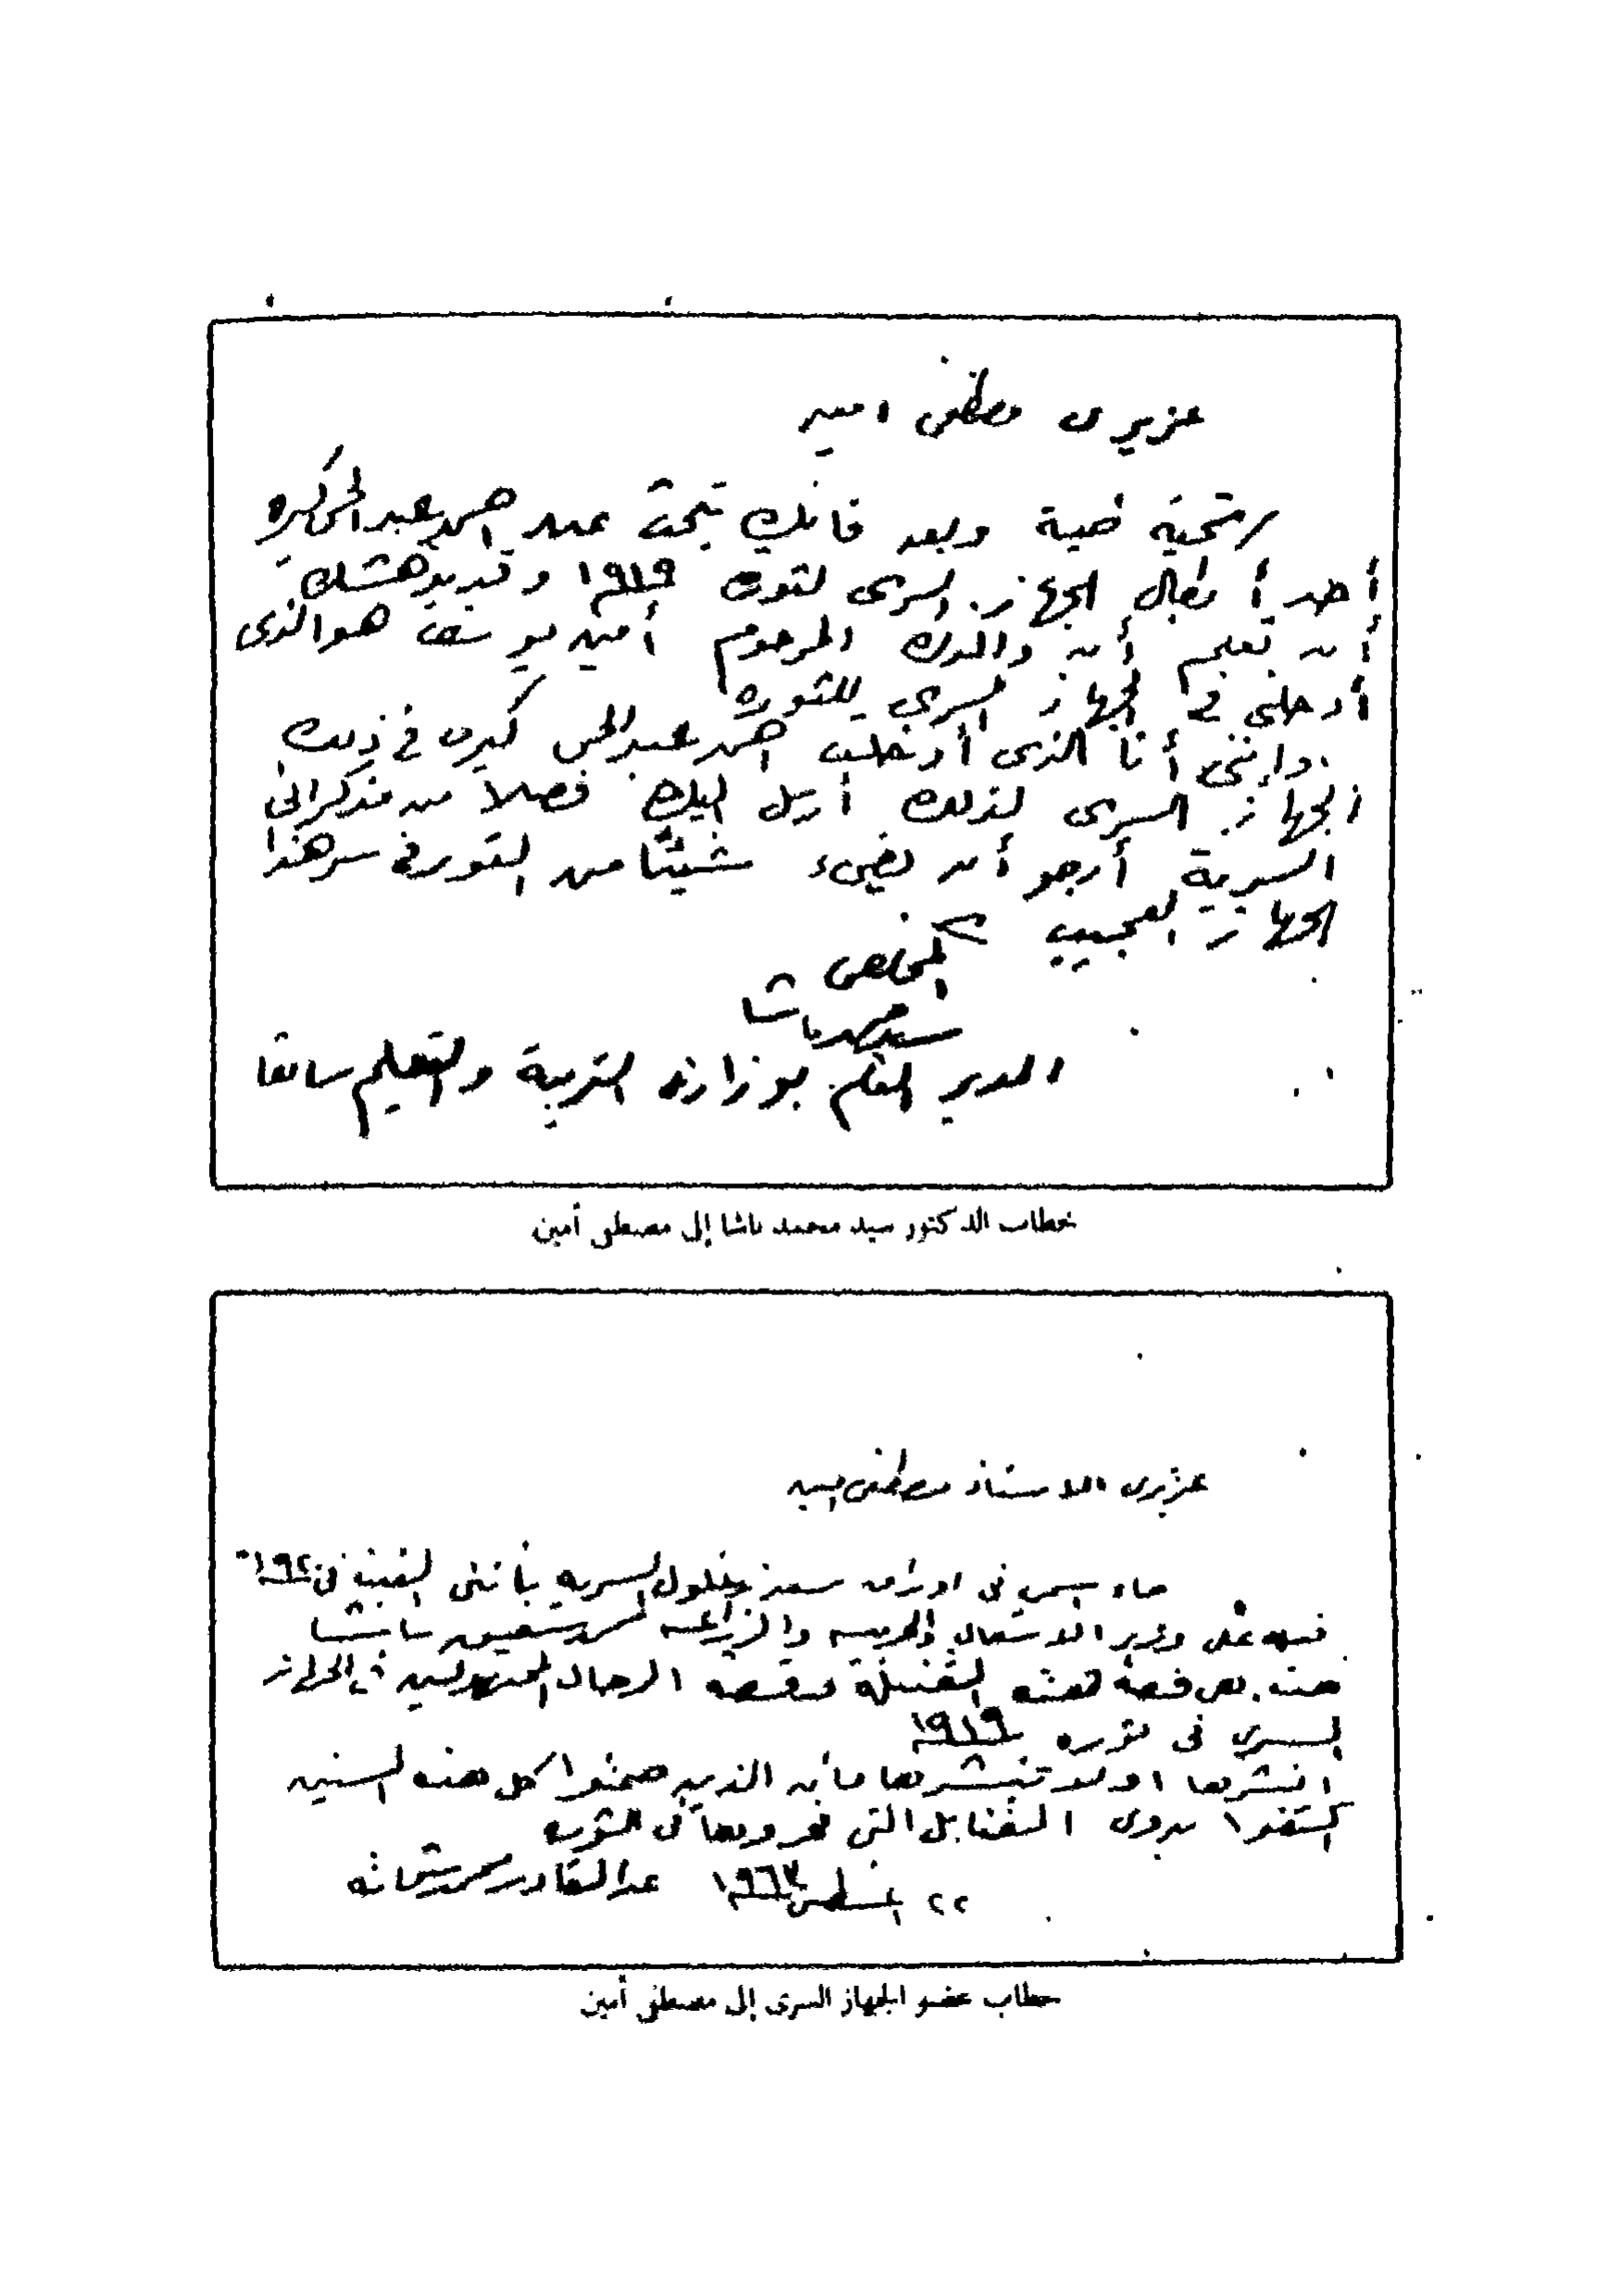 عزيزى مصطفى امين
تحية طيبة وبعد فانك تبحث عن احمد عبد الحى كيره
أحد أبطال الجهاز السرى لثورة ١٩١٩ وقد يدهشك
أن تعلم أن والدك المرحوم أمين يوسف هو الذى
أدخلنى فى الجهاز السرى للثورة
وإننى أنا الذى أدخلت احمد عبد الحى كيره فى ذلك
الجهاز السرى لذلك أرسل اليك فصلا من مذكراتى
السرية أرجو أن يضىء شيئا من النور فى سر هذا
الجهاز العجيب
المخلص
سيد محمد باشا
المدير العام بوزارة التربية والتعليم سابقا
خطاب الدكتور سيد محمد باشا إلى مصطفى أمين
عزيزى الاستاذ مصطفى امين
جاء اسمى فى اوراق سعد زغلول السرية بأننى القيت فى ١٩٢٠
قنبلة على وزير الاشغال والحربية والزراعة محمد شفيق باشا
هذه هى قصة هذه القنبلة وقصة الرجال المجهولين فى الجهاز
السرى فى ثورة ١٩١٩
انشرها او لا تنشرها فأن الذين صمتوا كل هذه السنين
اكتفوا بدوى القنابل التى فجروها فى الثورة
٢٢ اغسطس ١٩٦٣ عبد القادر محمد شحاته
خطاب عضو الجهاز السرى إلى مصطفى أمين